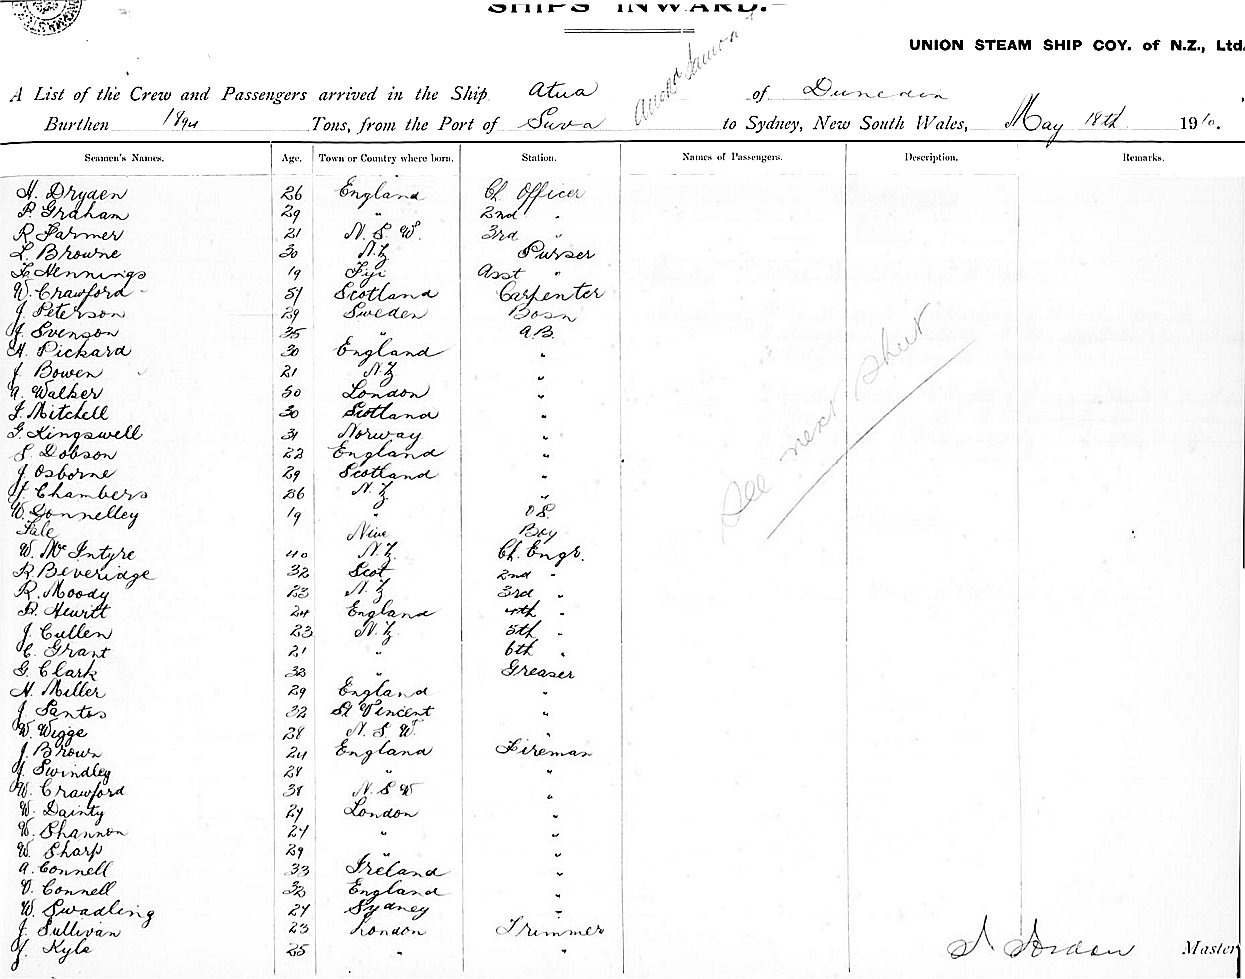 SHIPS INWARD.
UNION STEAM SHIP COY. of N.Z., Ltd.
A List of the Crew and Passengers arrived in the Ship Atua of Dunedin
Burthen Tons, from the Port of Suva to Sydney, New South Wales, May 18th 1910.
Seamen's Names. Age. Town or Country where born. Station. Names of Passengers. Description. Remarks.
H. Dryden 26 England Ch Officer
P. Graham 29 " 2nd "
R Farmer 21 N. S. W. 3rd "
L. Browne 30 N.Z Purser
Hennings 19 Fiji Asst "
W. Crawford 51 Scotland Carpenter
J. Peterson 29 Sweden Bosn
J. Svenson 35 " A.B.
H. Pickard 30 England "
J. Bowen 21 N.Z "
A. Walker 50 London "
J. Mitchell 30 Scotland "
G. Kingswell 31 Norway "
S Dobson 22 England "
J Osborne 29 Scotland "
J. Chambers 26 N.Z. "
W. Donnelley 19 " O.S.
Fale Niue Boy
W. McIntyre 40 N.Z. Ch. Engr.
R Beveridge 32 Scot 2nd "
R. Moody 23 N.Z 3rd "
R. Hewitt 24 England 4th "
J. Cullen 23 N.Z. 5th "
C. Grant 21 " 6th "
G. Clark 32 " Greaser
H. Miller 29 England "
J. Santos 32 St Vincent "
W. Wigge 28 N. S. W. "
J. Brown 24 England Fireman
J. Swindley 28 " "
W. Crawford 38 N. S W "
W. Dainty 27 London "
W. Shannon 27 " "
W Sharp 29 " "
A. Connell 33 Ireland "
V. Connell 32 England "
W. Swadling 27 Sydney "
J. Sullivan 23 London Trimmer
J. Kyle 25 " "
See next sheet
Master